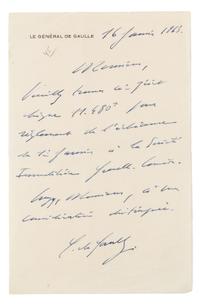 LE GÉNÉRAL DE GAULLE
16 Janvier 1963.
Monsieur,
Veuillez trouver ci-joint
chèque 11.480 F pour
règlement de l'échéance
de 15 Janvier à la Société
Immobilière
Croyez, Monsieur, à ma
considération distinguée.
C. de Gaulle